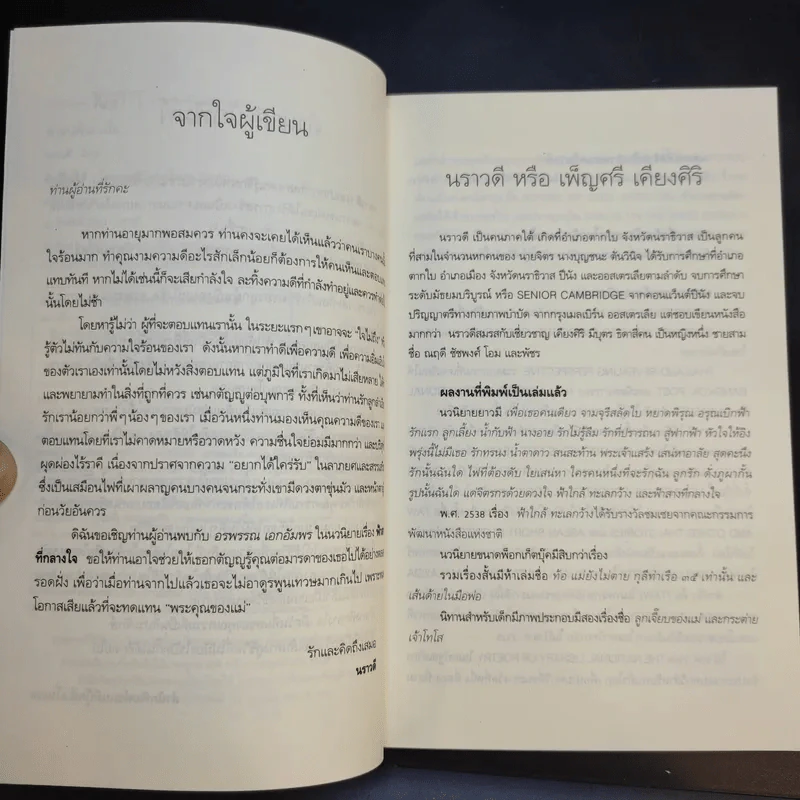 จากใจผู้เขียน
ท่านผู้อ่านที่รักคะ
หากท่านอายุมากพอสมควร ท่านคงจะเคยได้เห็นแล้วว่าคนเราบางคน
ใจร้อนมาก ทำคุณงามความดีอะไรสักเล็กน้อยก็ต้องการให้คนเห็นและตอบแทน
แทบทันที หากไม่ได้เช่นนี้ก็จะเสียกำลังใจ ละทิ้งความดีที่กำลังทำอยู่และควรทำต่อ
นั้นโดยไม่ช้า
โดยหารู้ไม่ว่า ผู้ที่จะตอบแทนเรานั้น ในระยะแรกๆ เขาอาจจะ "ใจไม่ถึง"
รู้ตัวไม่ทันกับความใจร้อนของเรา ดังนั้นหากเราทำดีเพื่อความดี เพื่อความ
ของตัวเราเองเท่านั้นโดยไม่หวังสิ่งตอบแทน แต่ภูมิใจที่เราเกิดมาไม่เสียหลาย ได้
และพยายามทำในสิ่งที่ถูกที่ควร เช่นกตัญญูต่อบุพการี ทั้งที่เห็นว่าท่านรักลูก
รักเราน้อยกว่าพี่ๆ น้องๆ ของเรา เมื่อวันหนึ่งท่านมองเห็นคุณความดีของเรา
ตอบแทนโดยที่เราไม่คาดหมายหรือวาดหวัง ความชื่นใจย่อมมีมากกว่า และ
ผุดผ่องไร้ราคี เนื่องจากปราศจากความ "อยากได้ใคร่รับ" ในลาภยศและสรรเสริญ
ซึ่งเป็นเสมือนไฟที่เผาผลาญคนบางคนจนกระทั่งเขามีดวงตาขุ่นมัว และหน้า
ก่อนวัยอันควร
ดิฉันขอเชิญท่านผู้อ่านพบกับ อรพรรณ เอกอัมพร ในนวนิยายเรื่อง
ที่กลางใจ ขอให้ท่านเอาใจช่วยให้เธอกตัญญูรู้คุณต่อมารดาของเธอไปได้อย่างตลอด
รอดฝั่ง เพื่อว่าเมื่อท่านจากไปแล้วเธอจะไม่อาดูรพูนเทวษมากเกินไป เพราะ
โอกาสเสียแล้วที่จะทดแทน "พระคุณของแม่"
รักและคิดถึงเสมอ
นราวดี
นราวดี หรือ เพ็ญศรี เคียงศิริ
นราวดี เป็นคนภาคใต้ เกิดที่อำเภอตากใบ จังหวัดนราธิวาส เป็นลูกคน
ที่สามในจำนวนหกคนของ นายจิตร นางบุญชนะ ตันวินิจ ได้รับการศึกษาที่อำเภอ
ตากใบ อำเภอเมือง จังหวัดนราธิวาส ปีนัง และออสเตรเลียตามลำดับ จบการศึกษา
ระดับมัธยมบริบูรณ์ หรือ SENIOR CAMBRIDGE จากคอนแว็นต์ปีนัง และจบ
ปริญญาตรีทางกายภาพบำบัด จากกรุงเมลเบิร์น ออสเตรเลีย แต่ชอบเขียนหนังสือ
มากกว่า นราวดีสมรสกับเชี่ยวชาญ เคียงศิริ มีบุตร ธิดาสี่คน เป็นหญิงหนึ่ง ชายสาม
ชื่อ ณฤดี ชัชพงศ์ โอม และพัชร
ผลงานที่พิมพ์เป็นเล่มแล้ว
นวนิยายยาวมี เพื่อเธอคนเดียว จามจุรีสลัดใบ หยาดพิรุณ อรุณเบิกฟ้า
รักแรก ลูกเลี้ยง น้ำกับฟ้า นางอาย รักไม่รู้ลืม รักที่ปรารถนา สู่ฟากฟ้า หัวใจให้อิง
พรุ่งนี้ไม่มีเธอ รักทรนง น้ำตาดาว สนสะท้าน พระเจ้าแสร้ง เสน่หาอาลัย สุดคะนึง
รักนั้นฉันใด ไฟที่ต้องดับ ใยเสน่หา ใครคนหนึ่งที่จะรักฉัน ลูกรัก ดั่งภูผากั้น
รูปนั้นฉันใด แต่จิตรกรด้วยดวงใจ ฟ้าใกล้ ทะเลกว้าง และฟ้าสางที่กลางใจ
พ.ศ. 2538 เรื่อง ฟ้าใกล้ ทะเลกว้างได้รับรางวัลชมเชยจากคณะกรรมการ
พัฒนาหนังสือแห่งชาติ
นวนิยายขนาดพ็อกเก็ตบุ๊คมีสิบกว่าเรื่อง
รวมเรื่องสั้นมีห้าเล่มชื่อ ท้อ แม่ยังไม่ตาย กุลีท่าเรือ ๓๕ เท่านั้น และ
เส้นด้ายในมือพ่อ
นิทานสำหรับเด็กมีภาพประกอบมีสองเรื่องชื่อ ลูกเจี๊ยบของแม่ และกระต่าย
เจ้าโทโส